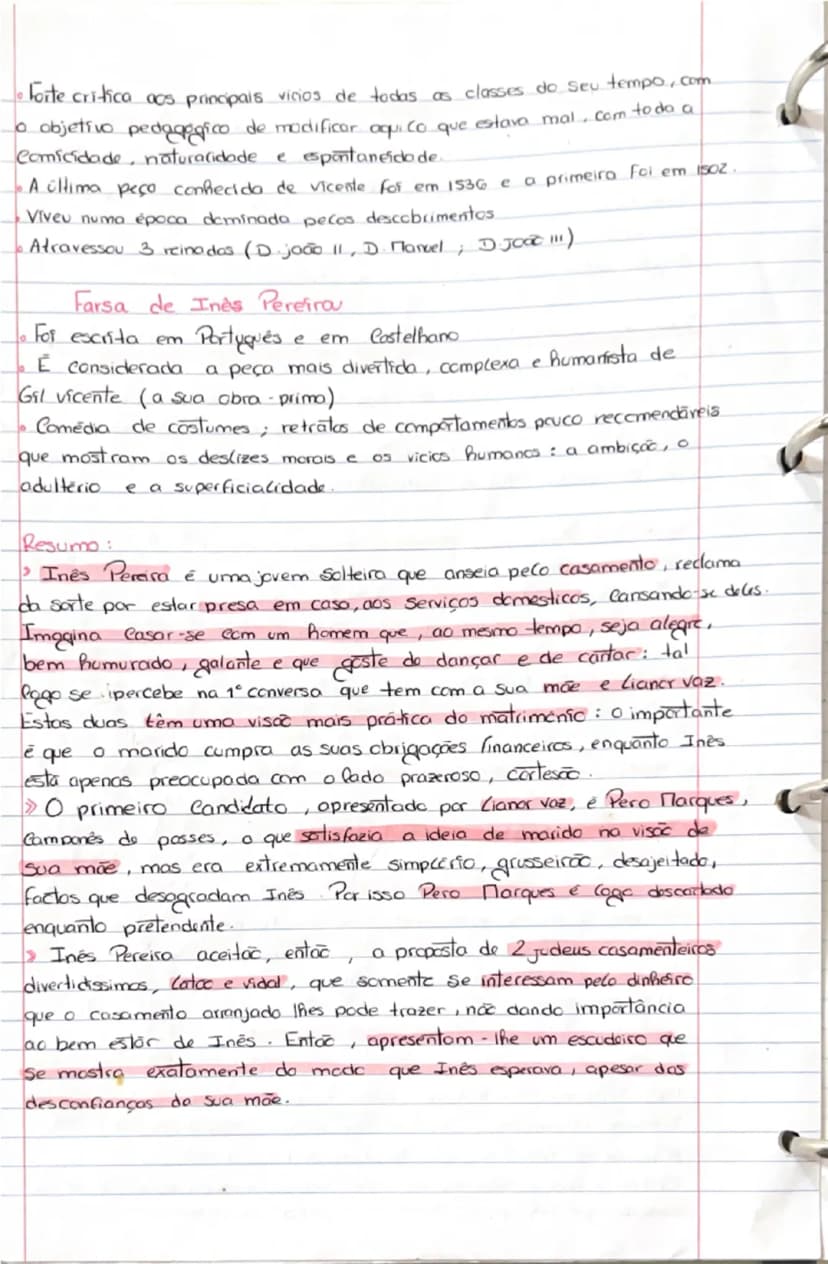 • Forte crítica aos principais vícios de todas as classes do seu tempo, com
o objetivo pedagógico de modificar aquilo que estava mal, com toda a
comicidade, naturalidade e espontaneidade.
• A última peça conhecida de Vicente foi em 1536 e a primeira foi em 1502.
• Viveu numa época dominada pelos descobrimentos
• Atravessou 3 reinados (D. João II, D. Manuel ; D. João III)
Farsa de Inês Pereira
• Foi escrita em Português e em Castelhano
• É considerada a peça mais divertida, complexa e humanista de
Gil Vicente (a sua obra-prima)
• Comédia de costumes ; retratos de comportamentos pouco recomendáveis
que mostram os deslizes morais e os vícios humanos : a ambição, o
adultério e a superficialidade.
Resumo :
» Inês Pereira é uma jovem solteira que anseia pelo casamento, reclama
da sorte por estar presa em casa, aos serviços domésticos, cansando-se deles.
Imagina casar-se com um homem que, ao mesmo tempo, seja alegre,
bem humurado, galante e que goste de dançar e de cantar : tal
logo se ipercebe na 1ª conversa que tem com a sua mãe e Lianor Vaz.
Estas duas têm uma visão mais prática do matrimónio : o importante
é que o marido cumpra as suas obrigações financeiras, enquanto Inês
está apenas preocupada com o lado prazeroso, cortesão.
» O primeiro candidato, apresentado por Lianor Vaz, é Pero Marques,
camponês de posses, o que satisfazia a ideia de marido na visão de
sua mãe, mas era extremamente simplório, grusseirão, desajeitado,
factos que desagradam Inês. Por isso Pero Marques é logo descartado
enquanto pretendente.
» Inês Pereira aceitac, então, a proposta de 2 judeus casamenteiros
divertidissimos, Latao e Vidal, que somente se interessam pelo dinheiro
que o casamento arranjado lhes pode trazer, não dando importância
ao bem estar de Inês. Então, apresentam-lhe um escudeiro que
se mostra exatamente do modo que Inês esperava, apesar das
desconfianças de sua mãe.